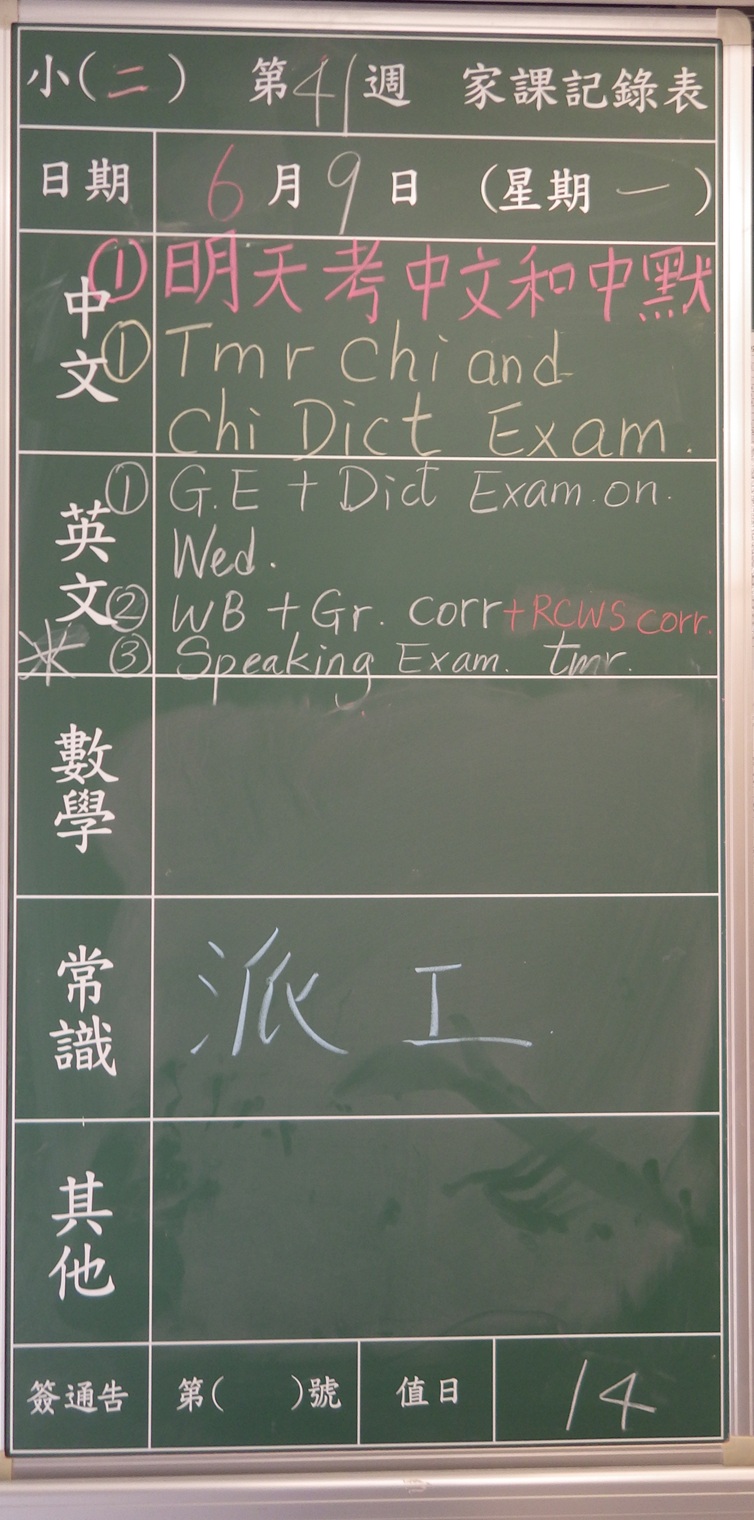 小(二) 第41週 家課記錄表
日期 6月9日 (星期一)
中文
① 明天考中文和中默
① Tmr Chi and
Chi Dict Exam.
英文
① G.E + Dict Exam. on.
Wed.
② WB + Gr. corr + RCWS corr.
③ Speaking Exam. tmr.
數學
常識
派工
其他
簽通告 第( )號 值日 14